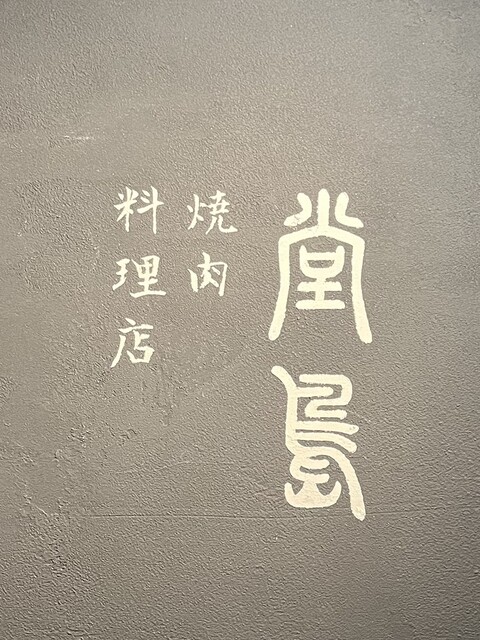 堂島
焼肉
料理店